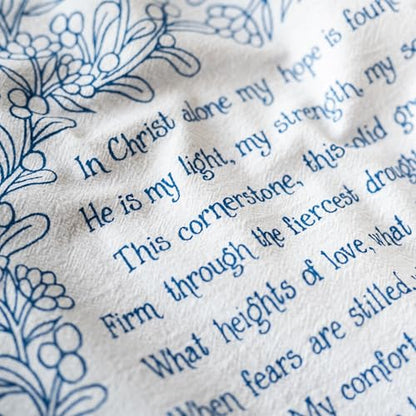 In Christ alone my hope is foun
He is my light, my strength, my so
This cornerstone, this solid gr
Firm through the fiercest droug
What heights of love, what
When fears are stilled,
My comfort